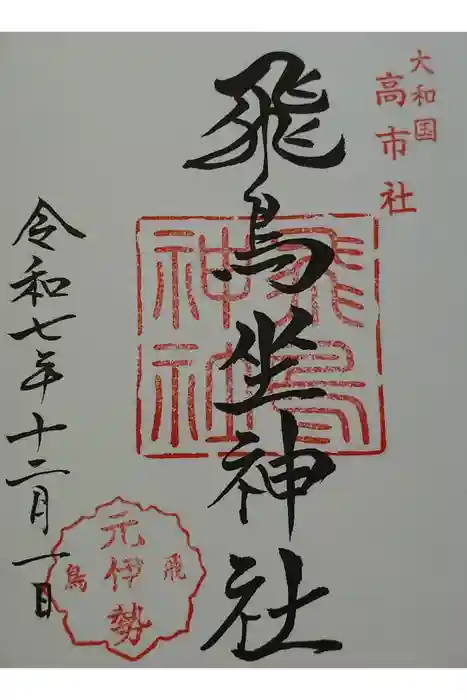 大和国
高市社
飛鳥坐神社
飛鳥
神社
令和七年十二月一日
飛
元伊勢
鳥